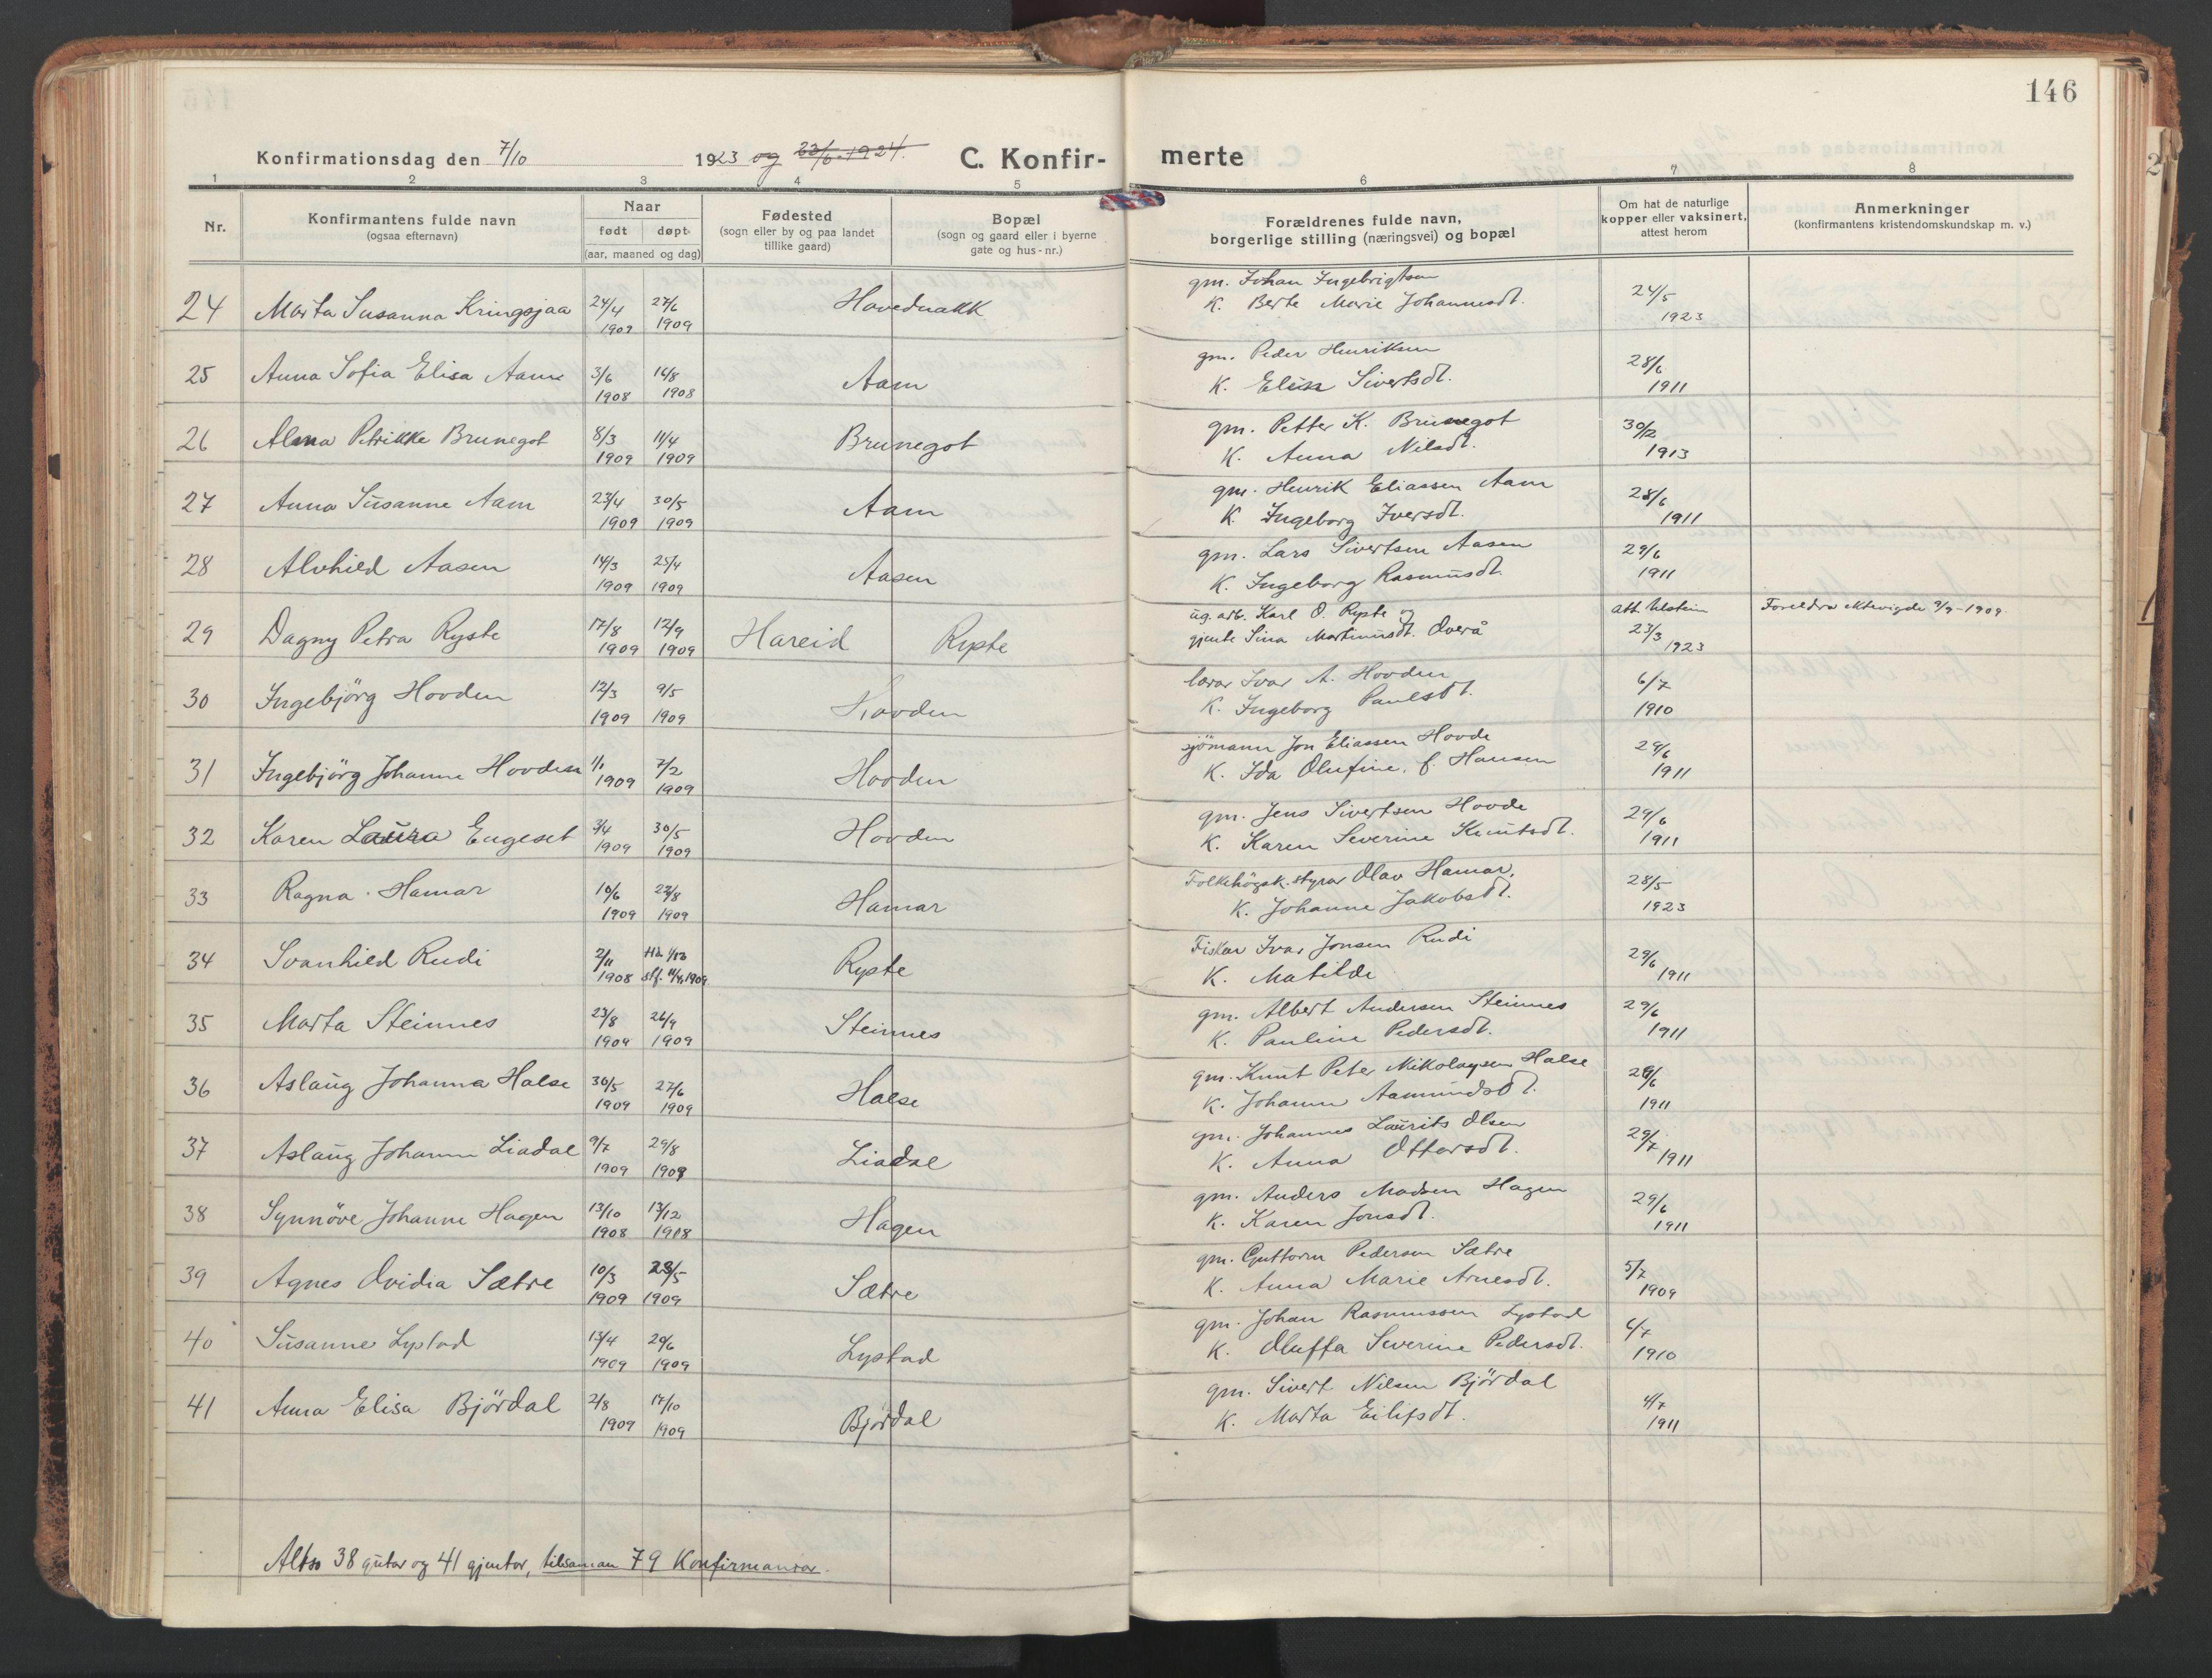 146
Konfirmationsdag den 7/10 1923 og 23/6 1924. C. Konfir- merte
1 2 3 4 5 6 7 8
Nr. Konfirmantens fulde navn (ogsaa efternavn) Naar født døpt (aar, maaned og dag) Fødested (sogn eller by og paa landet tillike gaard) Bopæl (sogn og gaard eller i byerne gate og hus-nr.) Forældrenes fulde navn, borgerlige stilling (næringsvei) og bopæl Om hat de naturlige kopper eller vaksinert, attest herom Anmerkninger (konfirmantens kristendomskundskap m. v.)
24 Marta Susanna Kringsjaa 24/4 1909 27/6 1909 Hovednakk gm. Johan Ingebrigtsen K. Berte Marie Johannesdt. 24/5 1923
25 Anna Sofia Elisa Aam 3/6 1908 16/8 1908 Aam gm. Peder Henriksen K. Elisn Sivertsdt. 28/6 1911
26 Alma Petrikke Brunegot 8/3 1909 11/4 1909 Brunegot gm. Petter K. Brunegot K. Anna Nilsdt. 30/12 1913
27 Anna Susanne Aam 23/4 1909 30/5 1909 Aam gm. Henrik Eliassen Aam K. Ingeborg Iversdt. 28/6 1911
28 Alvhild Aasen 14/3 1909 25/4 1909 Aasen gm. Lars Sivertsen Aasen K. Ingeborg Rasmusdt. 29/6 1911
29 Dagny Petra Ryste 17/8 1909 12/9 1909 Hareid Ryste ug. arb. Karl O. Ryste og gjente Sina Martinusdt. Överå att. Ulstein 23/3 1923 Foreldra ektevigde 9/9-1909.
30 Ingebjörg Hovden 12/3 1909 9/5 1909 Hovden lærar Ivar A. Hovden K. Ingeborg Paulsdt. 6/7 1910
31 Ingebjörg Johanne Hovden 1/1 1909 7/2 1909 Hovden sjömann Jon Eliassen Hovde K. Ida Olufine, f. Hansen 29/6 1911
32 Karen Laura Engeset 3/4 1909 30/5 1909 Hovden gm. Jens Sivertsen Hovde K. Karen Severine Knutsdt. 29/6 1911
33 Ragna Hamar 10/6 1909 22/8 1909 Hamar Folkehögsk. styrar Olav Hamar, K. Johanne Jakobsdt. 28/5 1923
34 Svanhild Rudi 2/11 1908 stf. 11/4 1909 Ryste Fiskar Ivar Jonsen Rudi K. Matilde 29/6 1911
35 Marta Steinnes 23/8 1909 26/9 1909 Steinnes gm. Albert Andersen Steinnes K. Pauline Pedersdt. 29/6 1911
36 Aslaug Johanna Halse 30/5 1909 27/6 1909 Halse gm. Knut Peter Nikolaysen Halse K. Johanne Aamundsdt. 29/6 1911
37 Aslaug Johanne Liadal 9/7 1909 29/8 1909 Liadal gm. Johannes Laurits Olsen K. Anna Ottarsdt. 29/7 1911
38 Synnöve Johanne Hagen 13/10 1908 13/12 1908 Hagen gm. Anders Madsen Hagen K. Karen Jonsdt. 29/6 1911
39 Agnes Ovidia Sætre 10/3 1909 23/5 1909 Sætre gm. Guttorm Pedersen Sætre K. Anna Marie Arnesdt. 5/7 1909
40 Susanne Lystad 13/4 1909 29/6 1909 Lystad gm. Johan Rasmussen Lystad K. Oluffa Severine Pedersdt. 6/7 1910
41 Anna Elisa Björdal 2/8 1909 17/10 1909 Björdal gm. Sivert Nilsen Björdal K. Marta Eilifsdt. 4/7 1911
Altso 38 gutar og 41 gjentor, tilsaman 79 Konfirmantar.